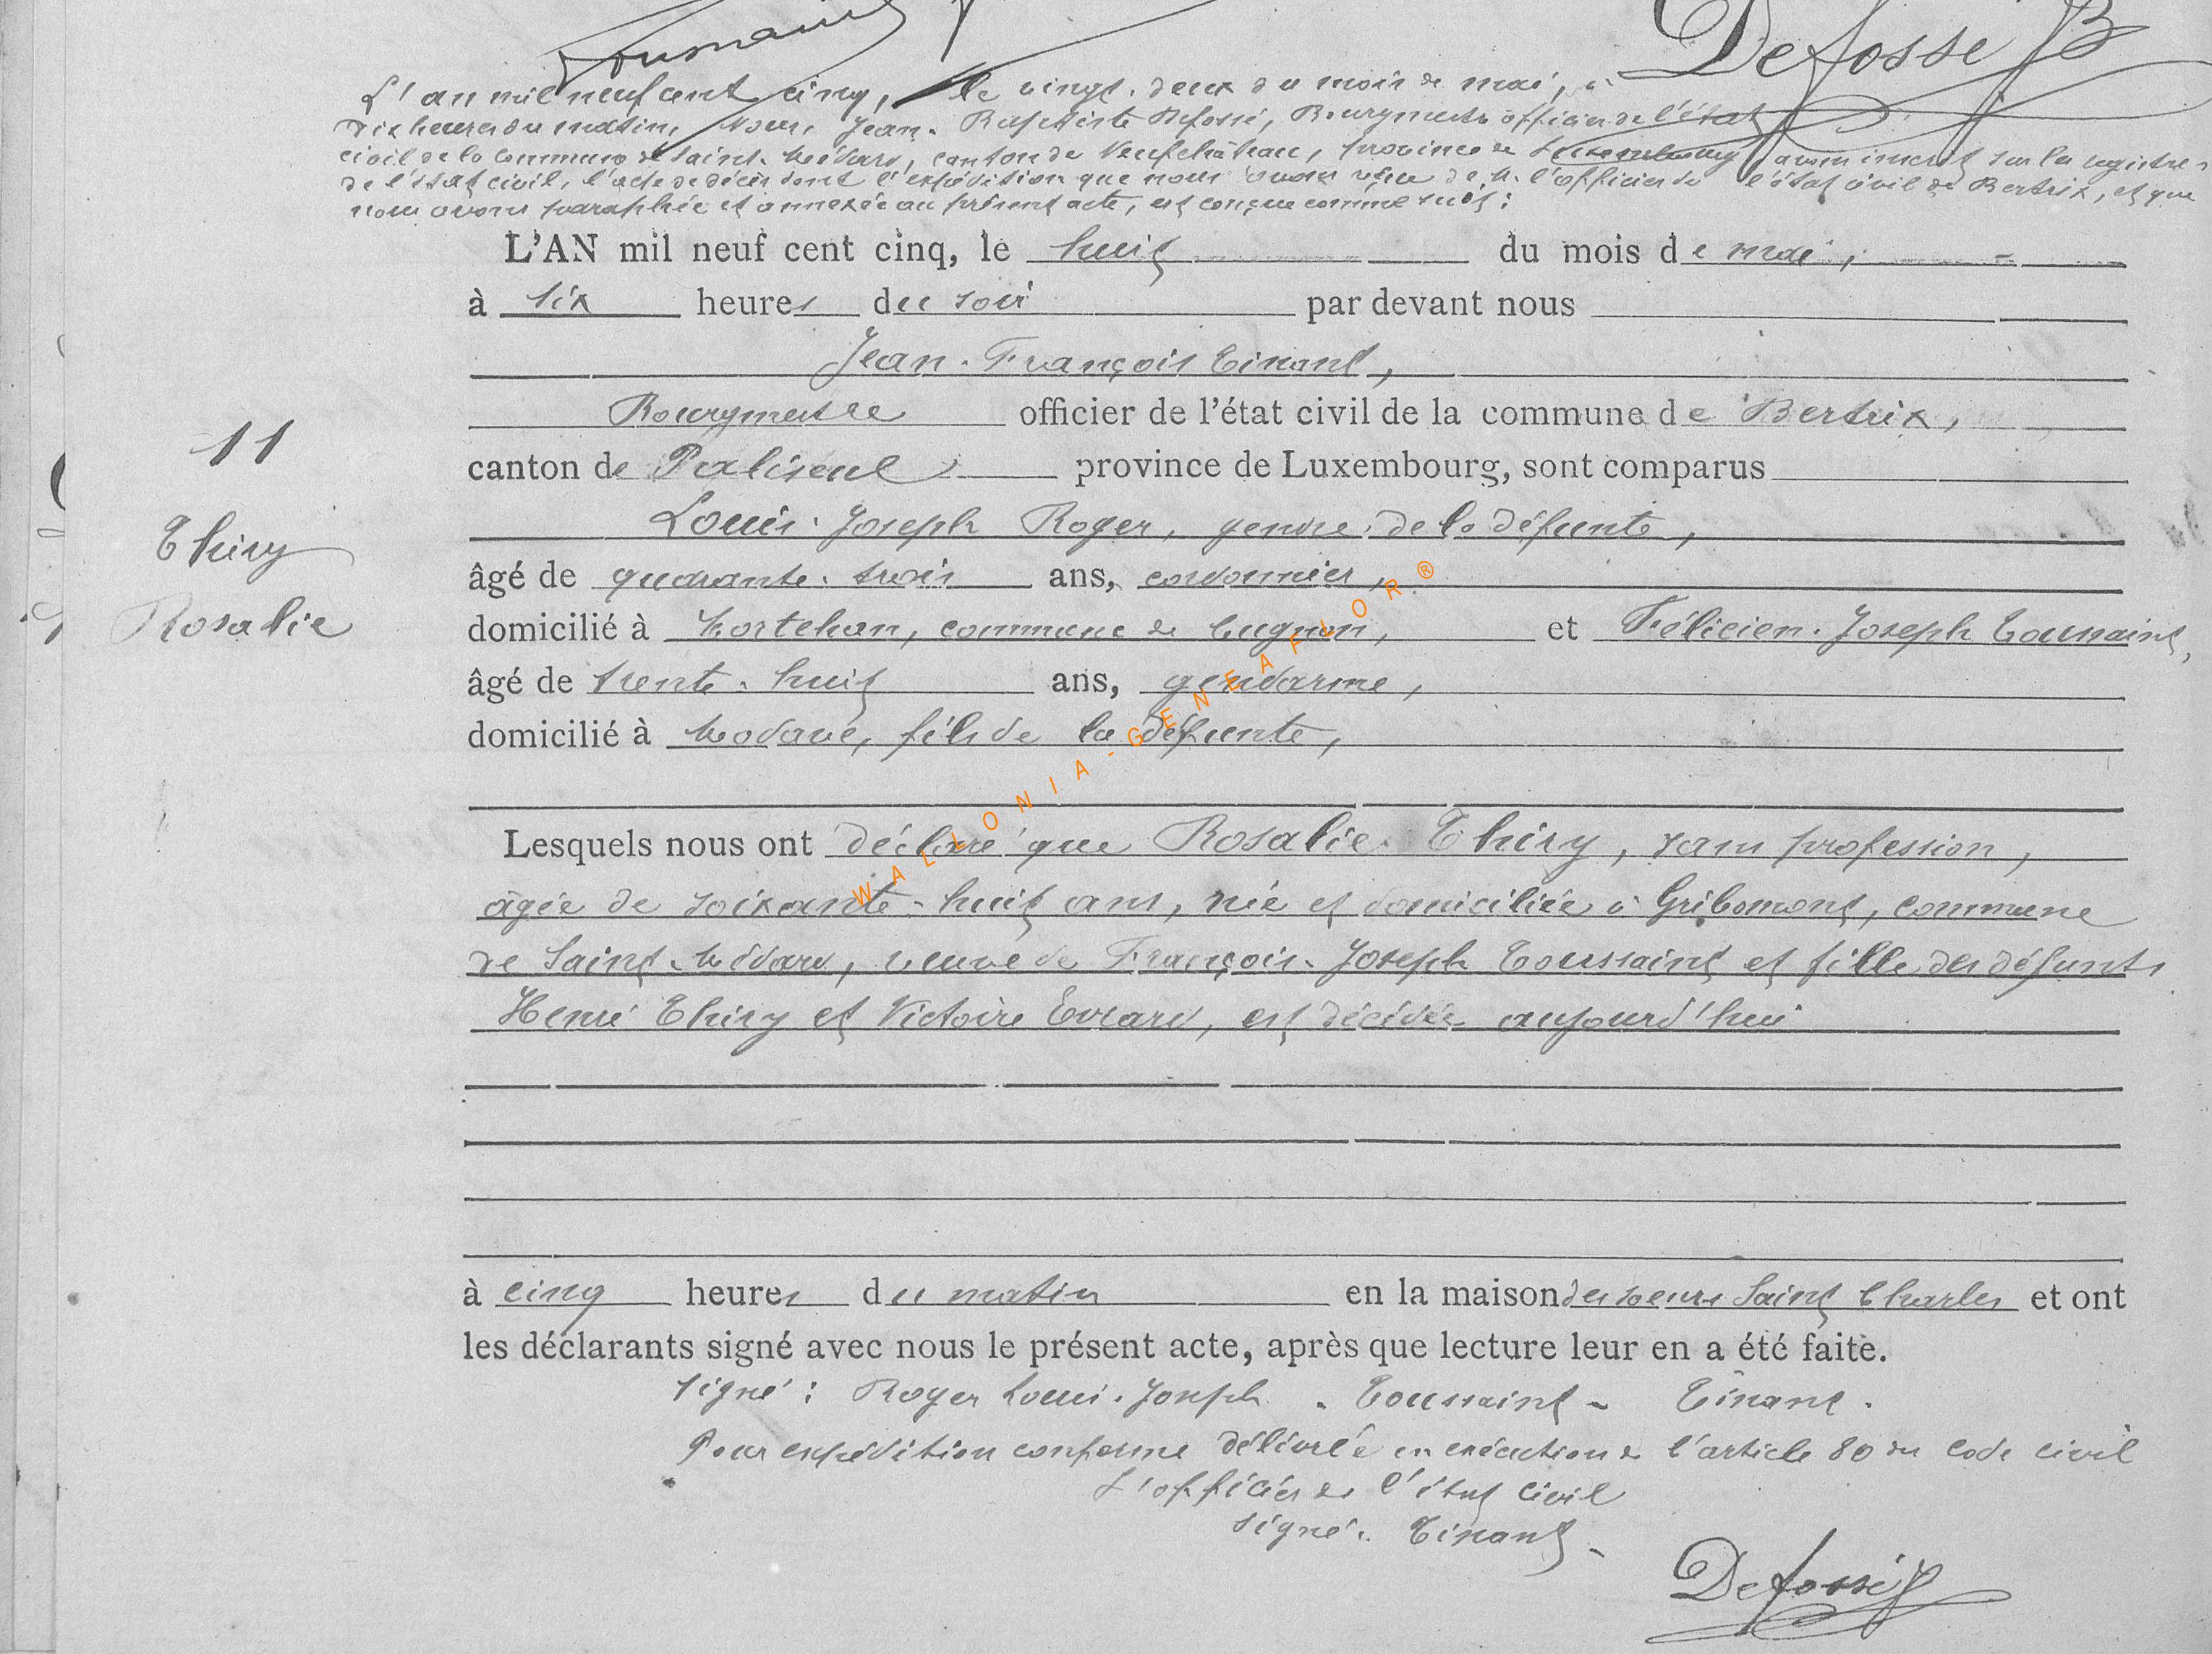 Toussaint
Defossé JB
L'an mil neuf cent cinq, le vingt-deux du mois de mai, à
dix heures du matin, Nous, Jean-Baptiste Defossé, Bourgmestre officier de l'état
civil de la commune de Saint-Médard, canton de Neufchâteau, province de Luxembourg, avons inscrit sur les registres
de l'état civil, l'acte de décès dont l'expédition que nous avons reçue de M. l'officier de l'état civil de Bertrix, et que
nous avons paraphée et annexée au présent acte, est conçue comme suit :
L'AN mil neuf cent cinq, le huit du mois de mai,
à six heures du soir par devant nous
Jean-François Tinant,
Bourgmestre officier de l'état civil de la commune de Bertrix,
11
canton de Paliseul province de Luxembourg, sont comparus
Louis-Joseph Roger, gendre de la défunte,
Thiry
âgé de quarante-trois ans, cordonnier,
Rosalie
domicilié à Mortehan, commune de Cugnon, et Félicien-Joseph Toussaint,
âgé de trente-huit ans, gendarme,
domicilié à Modave, fils de la défunte,
Lesquels nous ont déclaré que Rosalie Thiry, sans profession,
âgée de soixante-huit ans, née et domiciliée à Gribomont, commune
de Saint-Médard, veuve de François-Joseph Toussaint et fille des défunts
Henri Thiry et Victoire Evrard, est décédée aujourd'hui
à cinq heures du matin en la maison des soeurs Saint Charles et ont
les déclarants signé avec nous le présent acte, après que lecture leur en a été faite.
signé : Roger Louis-Joseph - Toussaint - Tinant.
Pour expédition conforme délivrée en exécution de l'article 80 du code civil
L'officier de l'état civil
signé : Tinant -
Defossé JB
WALLONIA-GENEAFLOR®